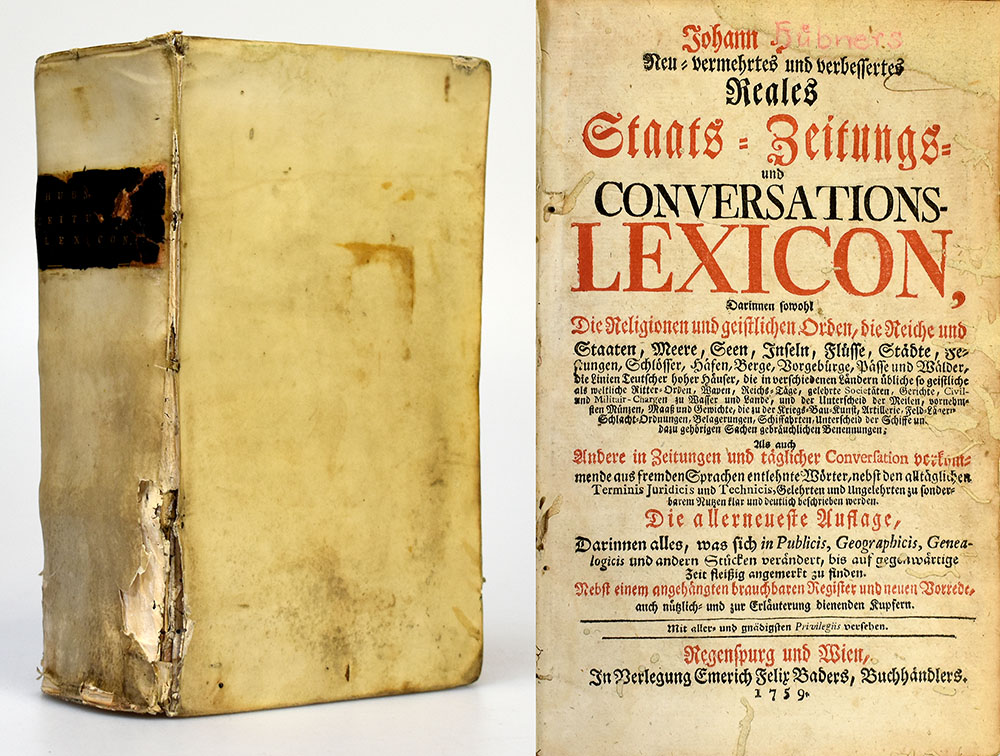 LEXICON.
Johann Hübners
Neu-vermehrtes und verbessertes
Reales
Staats-Zeitungs-
und
CONVERSATIONS-
LEXICON,
Darinnen sowohl
Die Religionen und geistlichen Orden, die Reiche und
Staaten, Meere, Seen, Inseln, Flüsse, Städte, Fe-
stungen, Schlösser, Häfen, Berge, Vorgebürge, Pässe und Wälder,
die Linien Teutscher hoher Häuser, die in verschiedenen Ländern übliche so geistliche
als weltliche Ritter-Orden, Wapen, Reichs-Täge, gelehrte Societäten, Gerichte, Civil-
und Militair-Chargen zu Wasser und Lande, und der Unterscheid der Meilen, vornehm-
sten Müntzen, Maaß und Gewichte, die zu der Kriegs-Bau-Kunst, Artillerie, Feld-Lägern
Schlacht-Ordnungen, Belagerungen, Schiffahrten, Unterscheid der Schiffe un
dazu gehörigen Sachen gebräuchlichen Benennungen;
Als auch
Andere in Zeitungen und täglicher Conversation vorkom-
mende aus fremden Sprachen entlehnte Wörter, nebst den alltäglichen
Terminis Juridicis und Technicis, Gelehrten und Ungelehrten zu sonder-
barem Nutzen klar und deutlich beschrieben werden.
Die allerneueste Auflage,
Darinnen alles, was sich in Publicis, Geographicis, Genea-
logicis und andern Stücken verändert, bis auf gegenwärtige
Zeit fleißig angemerkt zu finden.
Nebst einem angehängten brauchbaren Register und neuen Vorrede,
auch nützlich- und zur Erläuterung dienenden Kupfern.
Mit aller- und gnädigsten Privilegiis versehen.
Regenspurg und Wien,
In Verlegung Emerich Felix Baders, Buchhändlers.
1759.